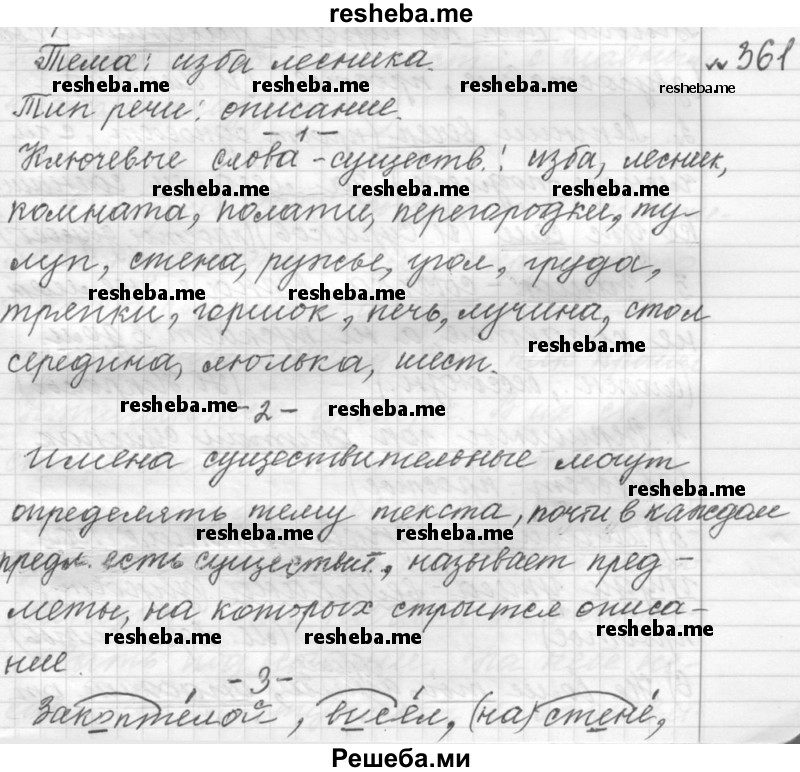 resheba.me
Тема: изба лесника. №361
resheba.me resheba.me resheba.me resheba.me
Тип речи: описание.
-1-
Ключевые слова-существ.: изба, лесник,
resheba.me resheba.me resheba.me
комната, полати, перегородки, ту-
луп, стена, ружье, угол, груда,
resheba.me resheba.me
тряпки, горшок, печь, лучина, стол
resheba.me
середина, люлька, шест.
resheba.me -2- resheba.me
Имена существительные могут
resheba.me
определять тему текста, почти в каждом
resheba.me resheba.me
предл. есть существит., называет пред-
меты, на которых строится описа-
resheba.me resheba.me resheba.me
ние.
-3-
Закоптелой, висел, (на) стене,
Решеба.ми